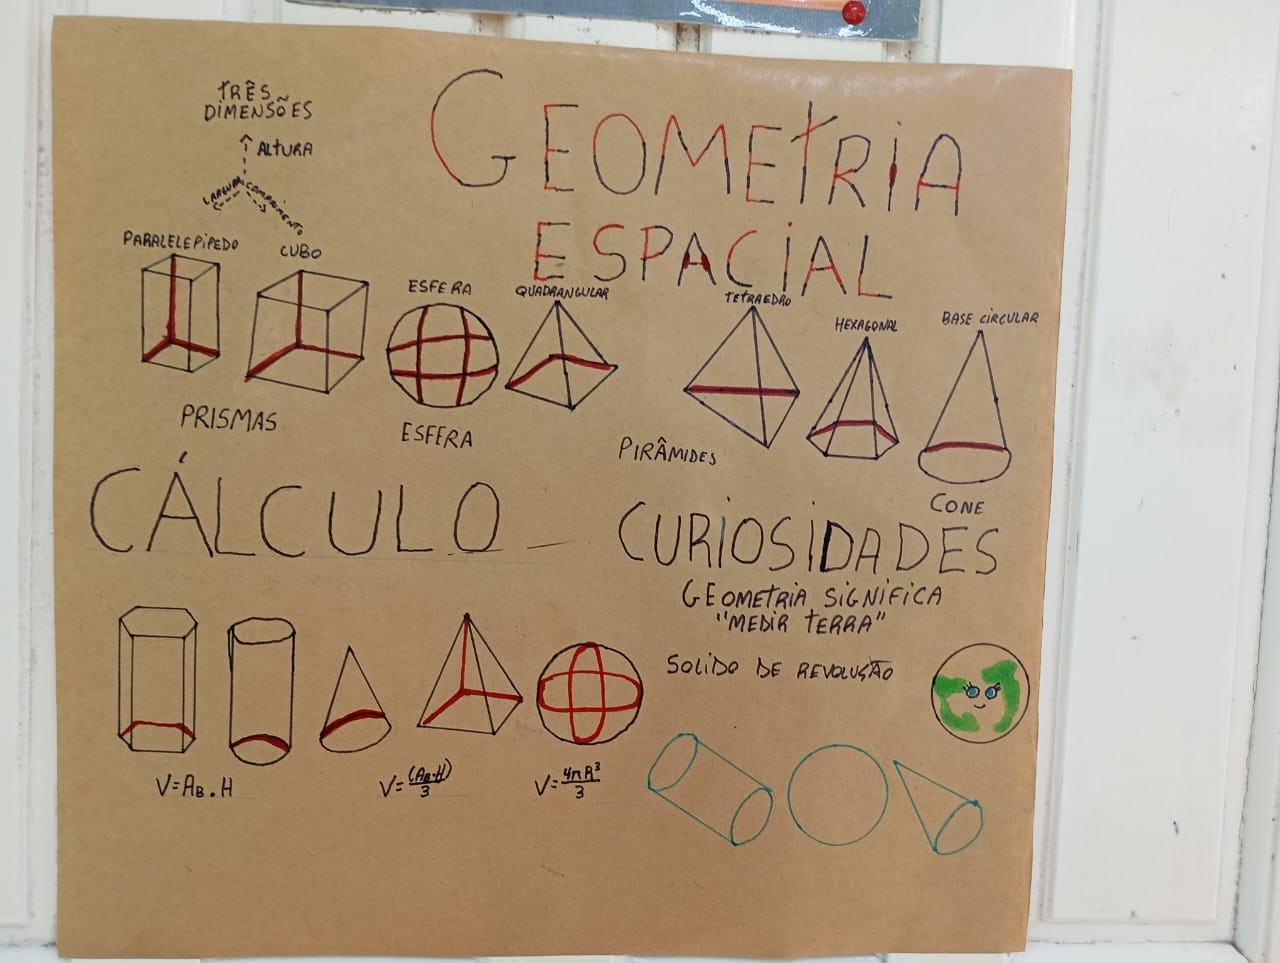 TRÊS
DIMENSÕES
ALTURA
LARGURA
COMPRIMENTO
GEOMETRIA
ESPACIAL
PARALELEPIPEDO
CUBO
ESFERA
QUADRANGULAR
TETRAEDRO
HEXAGONAL
BASE CIRCULAR
PRISMAS
ESFERA
PIRÂMIDES
CONE
CÁLCULO
V=AB.H
V=(AB.H)/3
V=4πR³/3
CURIOSIDADES
GEOMETRIA SIGNIFICA
"MEDIR TERRA"
SOLIDO DE REVOLUÇÃO